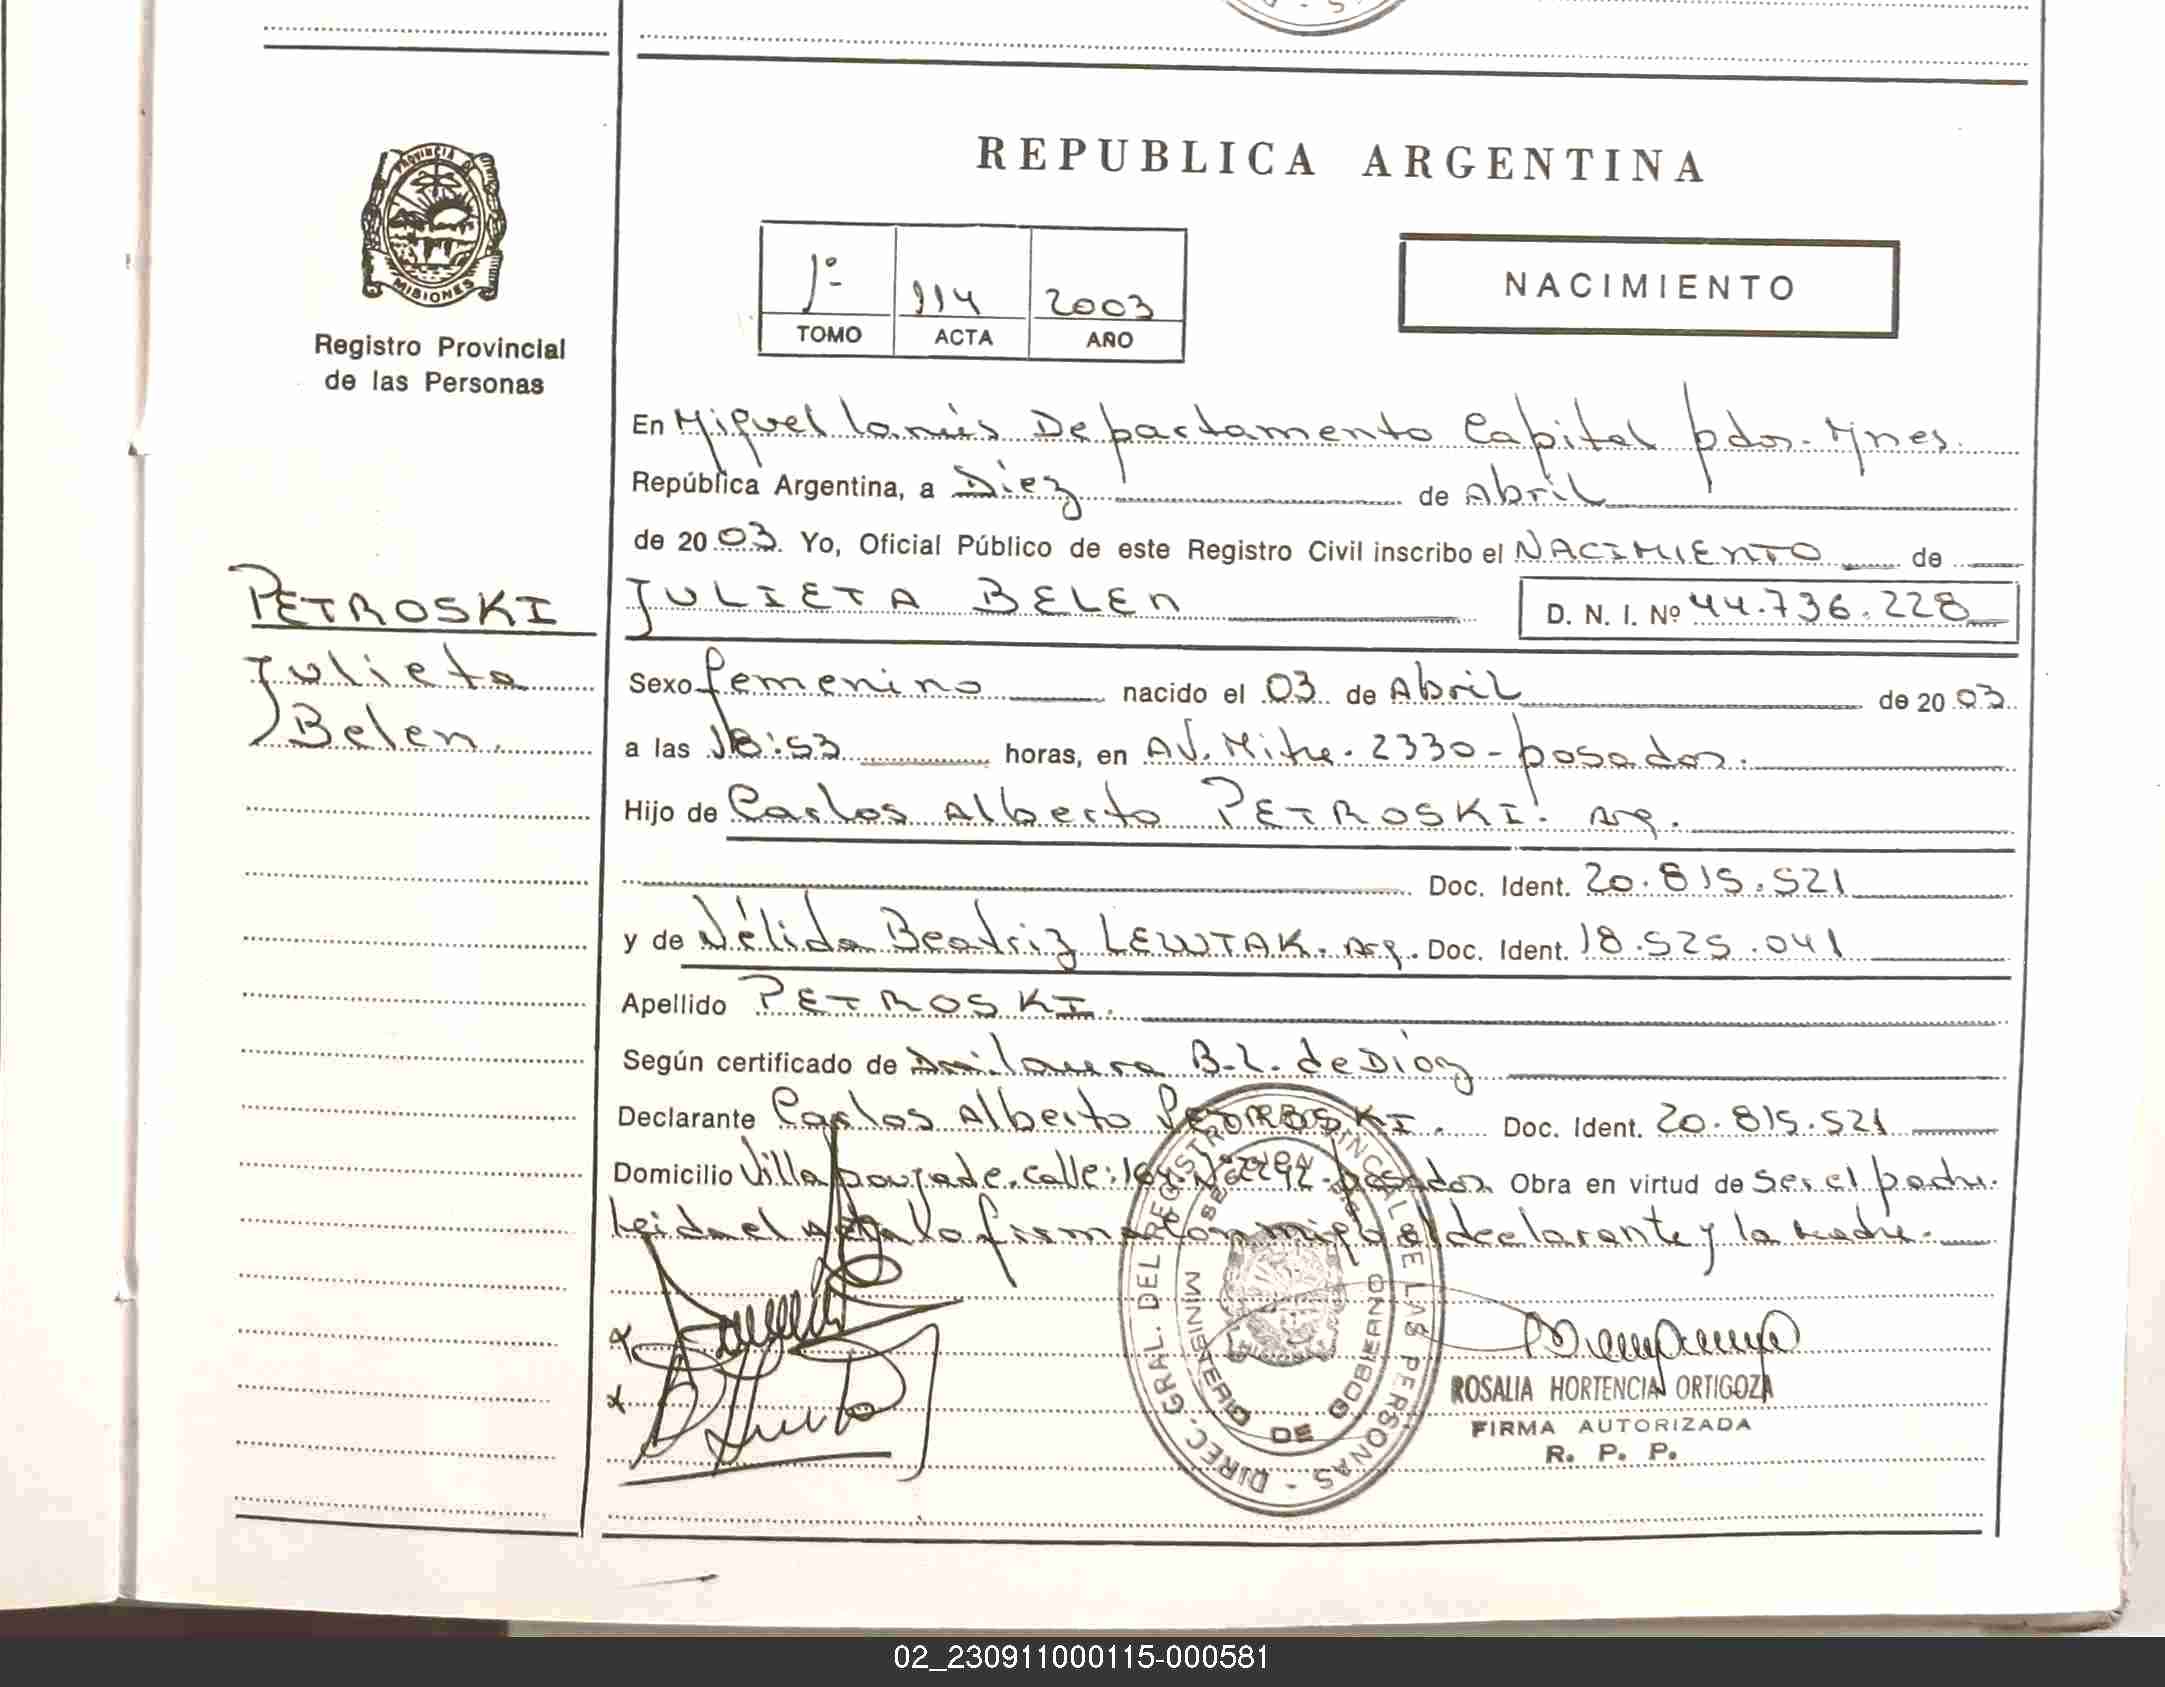 REPUBLICA ARGENTINA
PROVINCIA DE
MISIONES
Registro Provincial
de las Personas
1º 114 2003
TOMO ACTA AÑO
NACIMIENTO
En Miguel Lanús Departamento Capital pdas. Mnes.
República Argentina, a Diez de Abril
de 2003. Yo, Oficial Público de este Registro Civil inscribo el NACIMIENTO de
PETROSKI
Julieta
Belen.
JULIETA BELEN D. N. I. Nº 44.736.228
Sexo femenino nacido el 03 de Abril de 2003
a las 18:53 horas, en AV. Mitre. 2330 - posadas.
Hijo de Carlos Alberto PETROSKI. Arg.
Doc. Ident. 20.815.521
y de Nélida Beatriz LEWTAK. Arg. Doc. Ident. 18.525.041
Apellido PETROSKI.
Según certificado de laura B. L. de Diaz
Declarante Carlos Alberto PETROSKI. Doc. Ident. 20.815.521
Domicilio Villa poujade. calle: posadas Obra en virtud de ser el padre.
Leida el Acta la firma conmigo el declarante y la madre.
DIREC. GRAL. DEL REGISTRO PROVINCIAL DE LAS PERSONAS
MINISTERIO DE GOBIERNO
ROSALIA HORTENCIA ORTIGOZA
FIRMA AUTORIZADA
R. P. P.
02_230911000115-000581